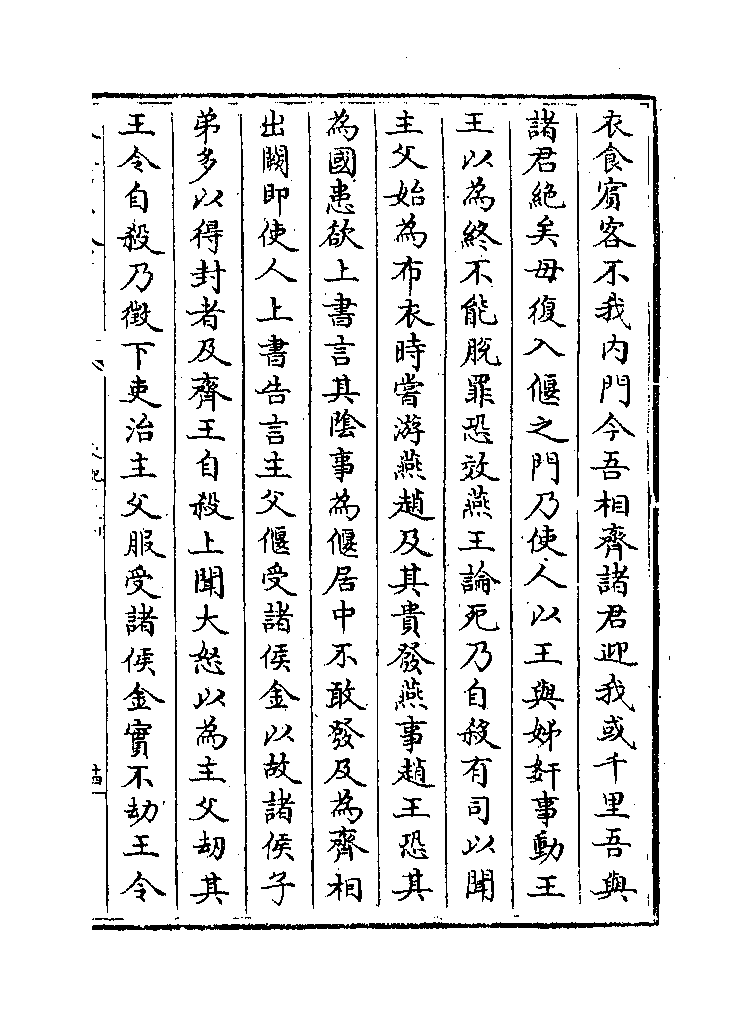 衣食賓客不我内門今吾相齊諸君迎我或千里吾與
諸君絶矣毋復入偃之門乃使人以王與姊姧事動王
王以為終不能脫罪恐效燕王論死乃自殺有司以聞
主父始為布衣時嘗游燕趙及其貴發燕事趙王恐其
為國患欲上書言其隂事為偃居中不敢發及為齊相
出關即使人上書告言主父偃受諸侯金以故諸侯子
弟多以得封者及齊王自殺上聞大怒以為主父劫其
王令自殺乃徵下吏治主父服受諸侯金實不劫王令